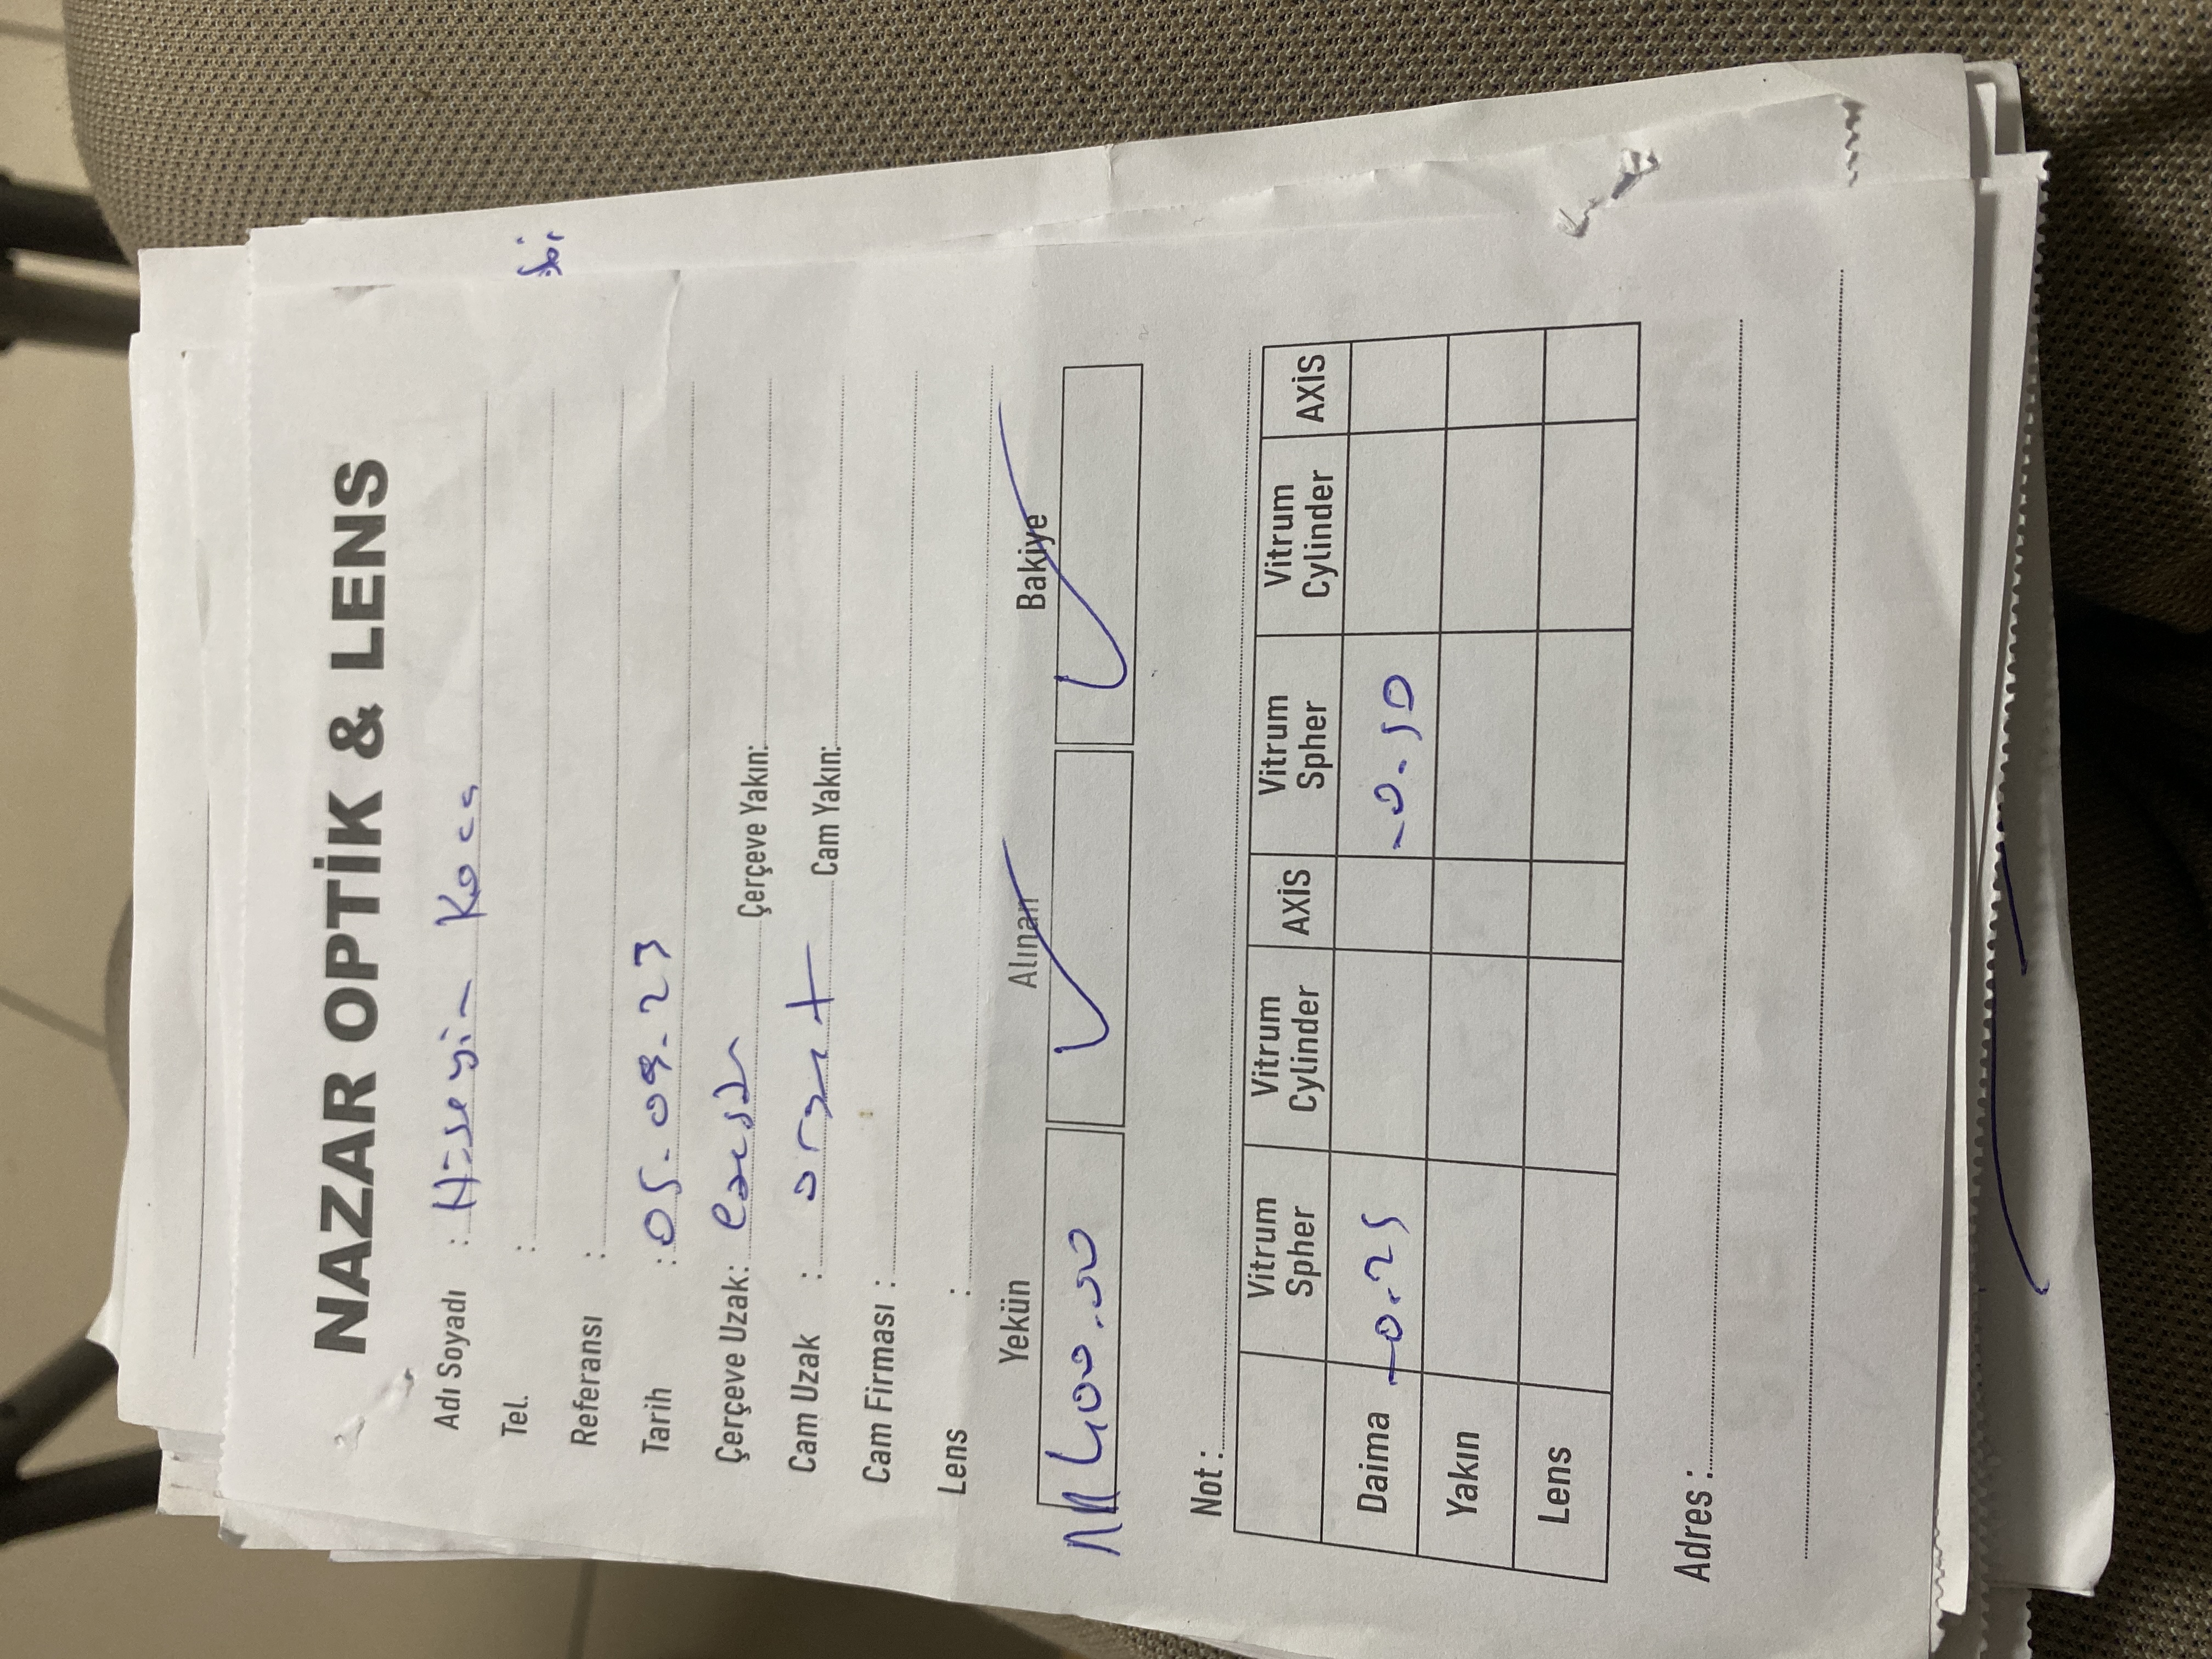 NAZAR OPTİK & LENS
Adı Soyadı : Hüseyin Koca
Tel. :
Referansı :
Tarih : 05.09.23
Çerçeve Uzak: Çerçeve Yakın:
Cam Uzak : Cam Yakın:
Cam Firması :
Lens :
Yekün Alınan Bakiye
400.00 ✓ ✓
Not :
Vitrum Spher Vitrum Cylinder AXİS Vitrum Spher Vitrum Cylinder AXİS
Daima -0.25 -0.50
Yakın
Lens
Adres :